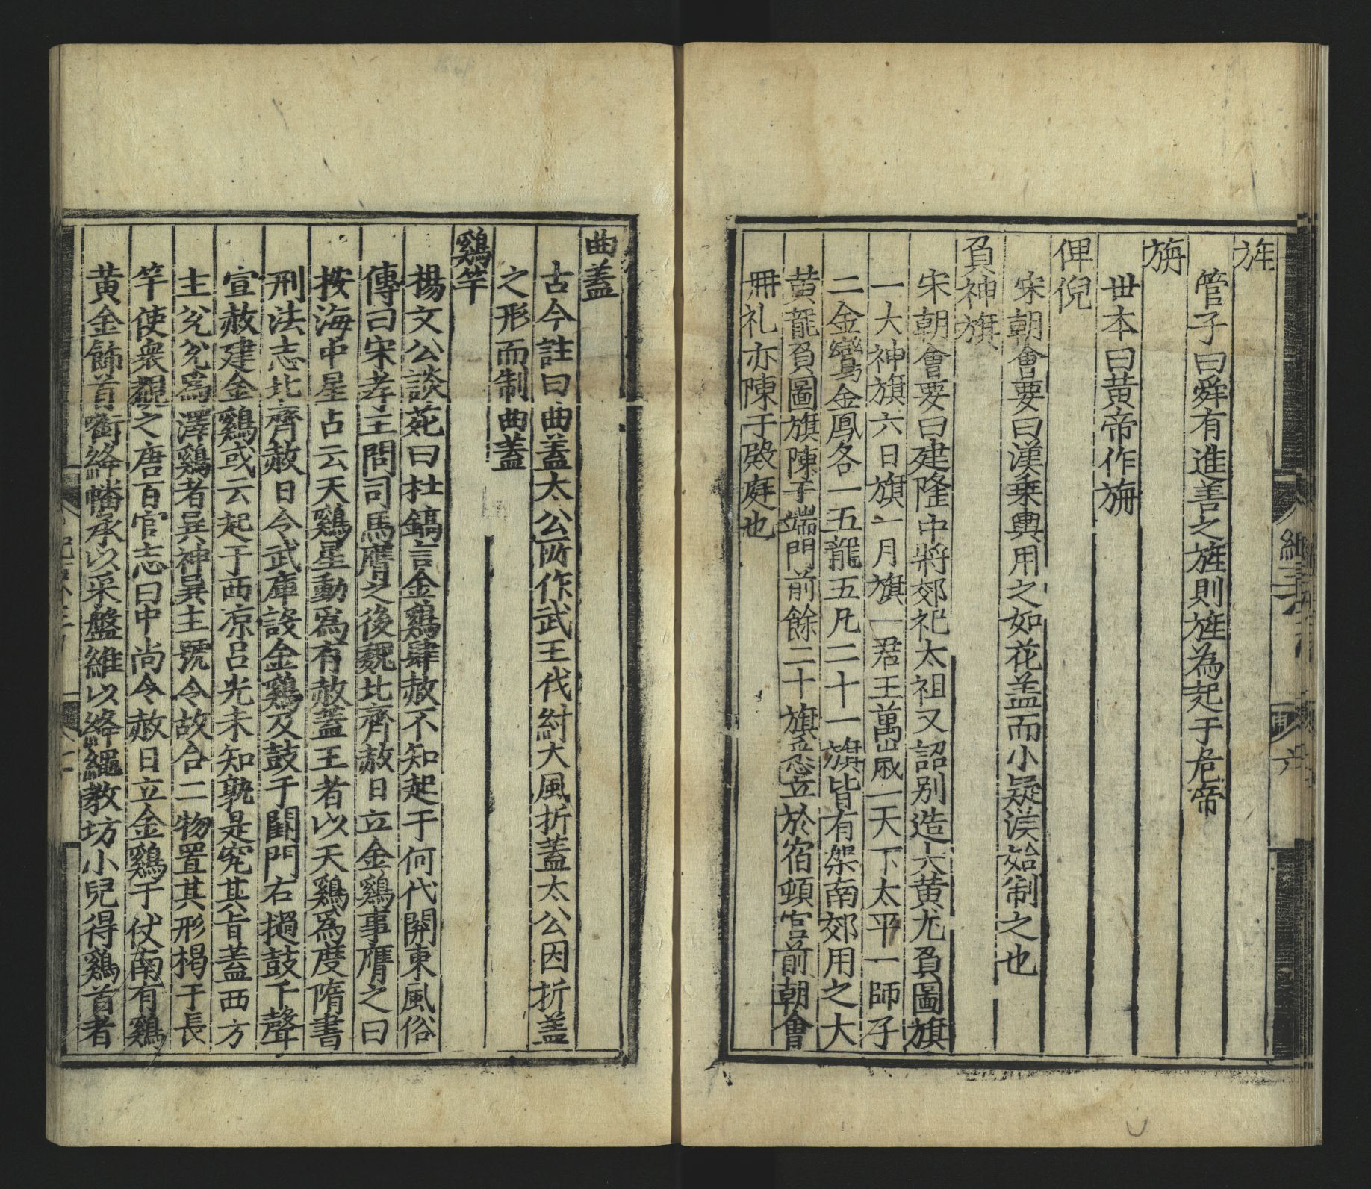 旌
管子曰舜有進善之旌則旌為起于危帝
旃
世本曰黃帝作旃
俾倪
宋朝會要曰漢乗輿用之如花盖而小疑漢始制之也
負神旗
宋朝會要曰建隆中將郊祀太祖又詔别造大黄尤負圖旗
一大神旗六日旗一月旗一君王萬歲一天下太平一師子
二金鸞金鳳各一五龍五凡二十一旗皆有架南郊用之大
黄龍負圖旗陳于端門前餘二十旗悉立於宿頓宫前朝會
冊礼亦陳于殿庭也
曲蓋
古今註曰曲蓋太公所作武王伐紂大風折蓋太公因折蓋
之形而制曲蓋
鷄竿
楊文公談苑曰杜鎬言金鷄肆赦不知起于何代關東風俗
傳曰宋孝王問司馬膺之後魏北齊赦日立金鷄事膺之曰
按海中星占云天鷄星動爲有赦蓋王者以天鷄爲度隋書
刑法志北齊赦日令武庫設金鷄及鼓于闕門右撾鼓千聲
宣赦建金鷄或云起于西凉吕光未知孰是究其旨蓋西方
主兊兊爲澤鷄者巽神巽主號令故合二物置其形揭于長
竿使衆覩之唐百官志曰中尚令赦日立金鷄于仗南有鷄
黄金飾首銜絳幡承以采盤維以絳繩教坊小兒得鷄首者